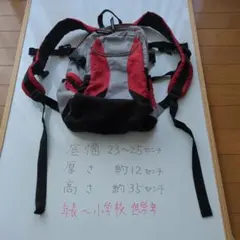 底幅 23〜25センチ
厚さ 約12センチ
高さ 約35センチ
〜小学校 低学年